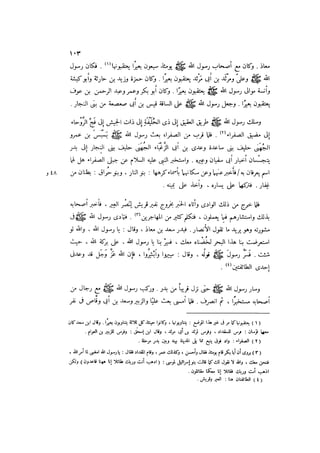 ١٠٣
معاذ. وكان مع أصحاب رسول الله ﷺ يومئذ سبعون بعيرًا يعتقبونها(١). فكان رسول
الله ﷺ وعلىّ ومرثد بن أبى مرثد، يعتقبون بعيرًا. وكان حمزة وزيد بن حارثة وأبو كبشة
وأنسة موالى رسول الله ﷺ يعتقبون بعيرًا. وكان أبو بكر وعمر وعبد الرحمن بن عوف
يعتقبون بعيرًا. وجعل رسول الله ﷺ على الساقة قيس بن أبى صعصعة من بنى النجار.
وسلك رسول الله ﷺ طريق العقيق إلى ذى الحُلَيْفَة إلى ذات الجيش إلى فَجّ الرَّوحاء
إلى مضيق الصفراء(٢). فلما قرب من الصفراء بعث رسول الله ﷺ بَسْبَس بن عمرو
الجُهَنى حليف بنى ساعدة وعدى بن أبى الزَّغْباء الجهنى حليف بنى النجار إلى بدر
يتجسَّسان أخبار أبى سفيان وغيره. واستخبر النبى عليه السلام عن جبلى الصفراء هل لهما
اسم يعرفان به / فأخبر عنهما وعن سكانهما بأسماء كرهها: بنو النار، وبنو حُراق: بطنان من
٤٨ و
غِفار. فتركهما على يساره، وأخذ على يمينه.
فلما خرج من ذلك الوادى وأتاه الخبر بخروج نفير قريش لنصر العير، فأخبر أصحابه
بذلك واستشارهم فيما يعملون، فتكلم كثير من المهاجرين(٣). فتمادى رسول الله ﷺ فى
مشورته وهو يريد ما تقول الأنصار. فبدر سعد بن معاذ، وقال: يا رسول الله، والله لو
استعرضت بنا هذا البحر لخُضناه معك، فسِرْ بنا يا رسول الله، على بركة الله، حيث
شئت. فَسُرّ رسولُ ﷺ بقوله، وقال: سيروا وأَبْشِروا، فإن الله عزَّ وجل قد وعدنى
إحدى الطائفتين(٤).
وسار رسول الله ﷺ حتى نزل قريبًا من بدر. وركب رسول الله ﷺ مع رجال من
أصحابه مستخبرًا، ثم انصرف. فلما أمسى بعث عليًّا والزبير وسعد بن أبى وقّاص فى نفر
(٢) الصفراء: واد فوق ينبع مما يلى المدينة بينه وبين بدر مرحلة.
اذهب أنت وربك فقاتلا إنا معكما مقاتلون.
(٤) الطائفتان هنا: العير وقريش.